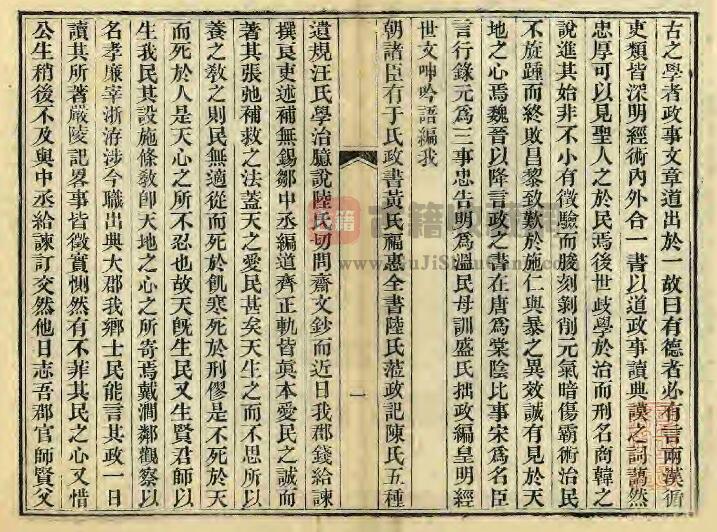 古之學者政事文章道出於一故曰有德者必有言兩漢循
吏類皆深明經術內外合一書以道政事讀典謨之詞藹然
忠厚可以見聖人之於民焉後世歧學於治而刑名商韓之
說進其始非不小有徵驗而朘刻剝削元氣暗傷霸術治民
不旋踵而終敗昌黎致歎於施仁與暴之異效誠有見於天
地之心焉魏晉以降言政之書在唐為棠陰比事宋為名臣
言行錄元為三事忠告明為溫民母訓盛氏拙政編皇明經
世文呻吟語編我
朝諸臣有于氏政書黃氏福惠全書陸氏蒞政記陳氏五種
遺規汪氏學治臆說陸氏切問齋文鈔而近日我郡錢給諫
撰良吏述補無錫鄒中丞編道齊正軌皆真本愛民之誠而
著其張弛補救之法蓋天之愛民甚矣天生之而不思所以
養之教之則民無適從而死於飢寒死於刑僇是不死於天
而死於人是天心之所不忍也故天既生民又生賢君師以
生我民其設施條教卽天地之心之所寄焉戴澗鄰觀察以
名孝廉宰浙洊涉今職出典大郡我鄉士民能言其政一日
讀其所著嚴陵記畧事皆徵實惻然有不菲其民之心又惜
公生稍後不及與中丞給諫訂交然他日志吾郡官師賢父
一